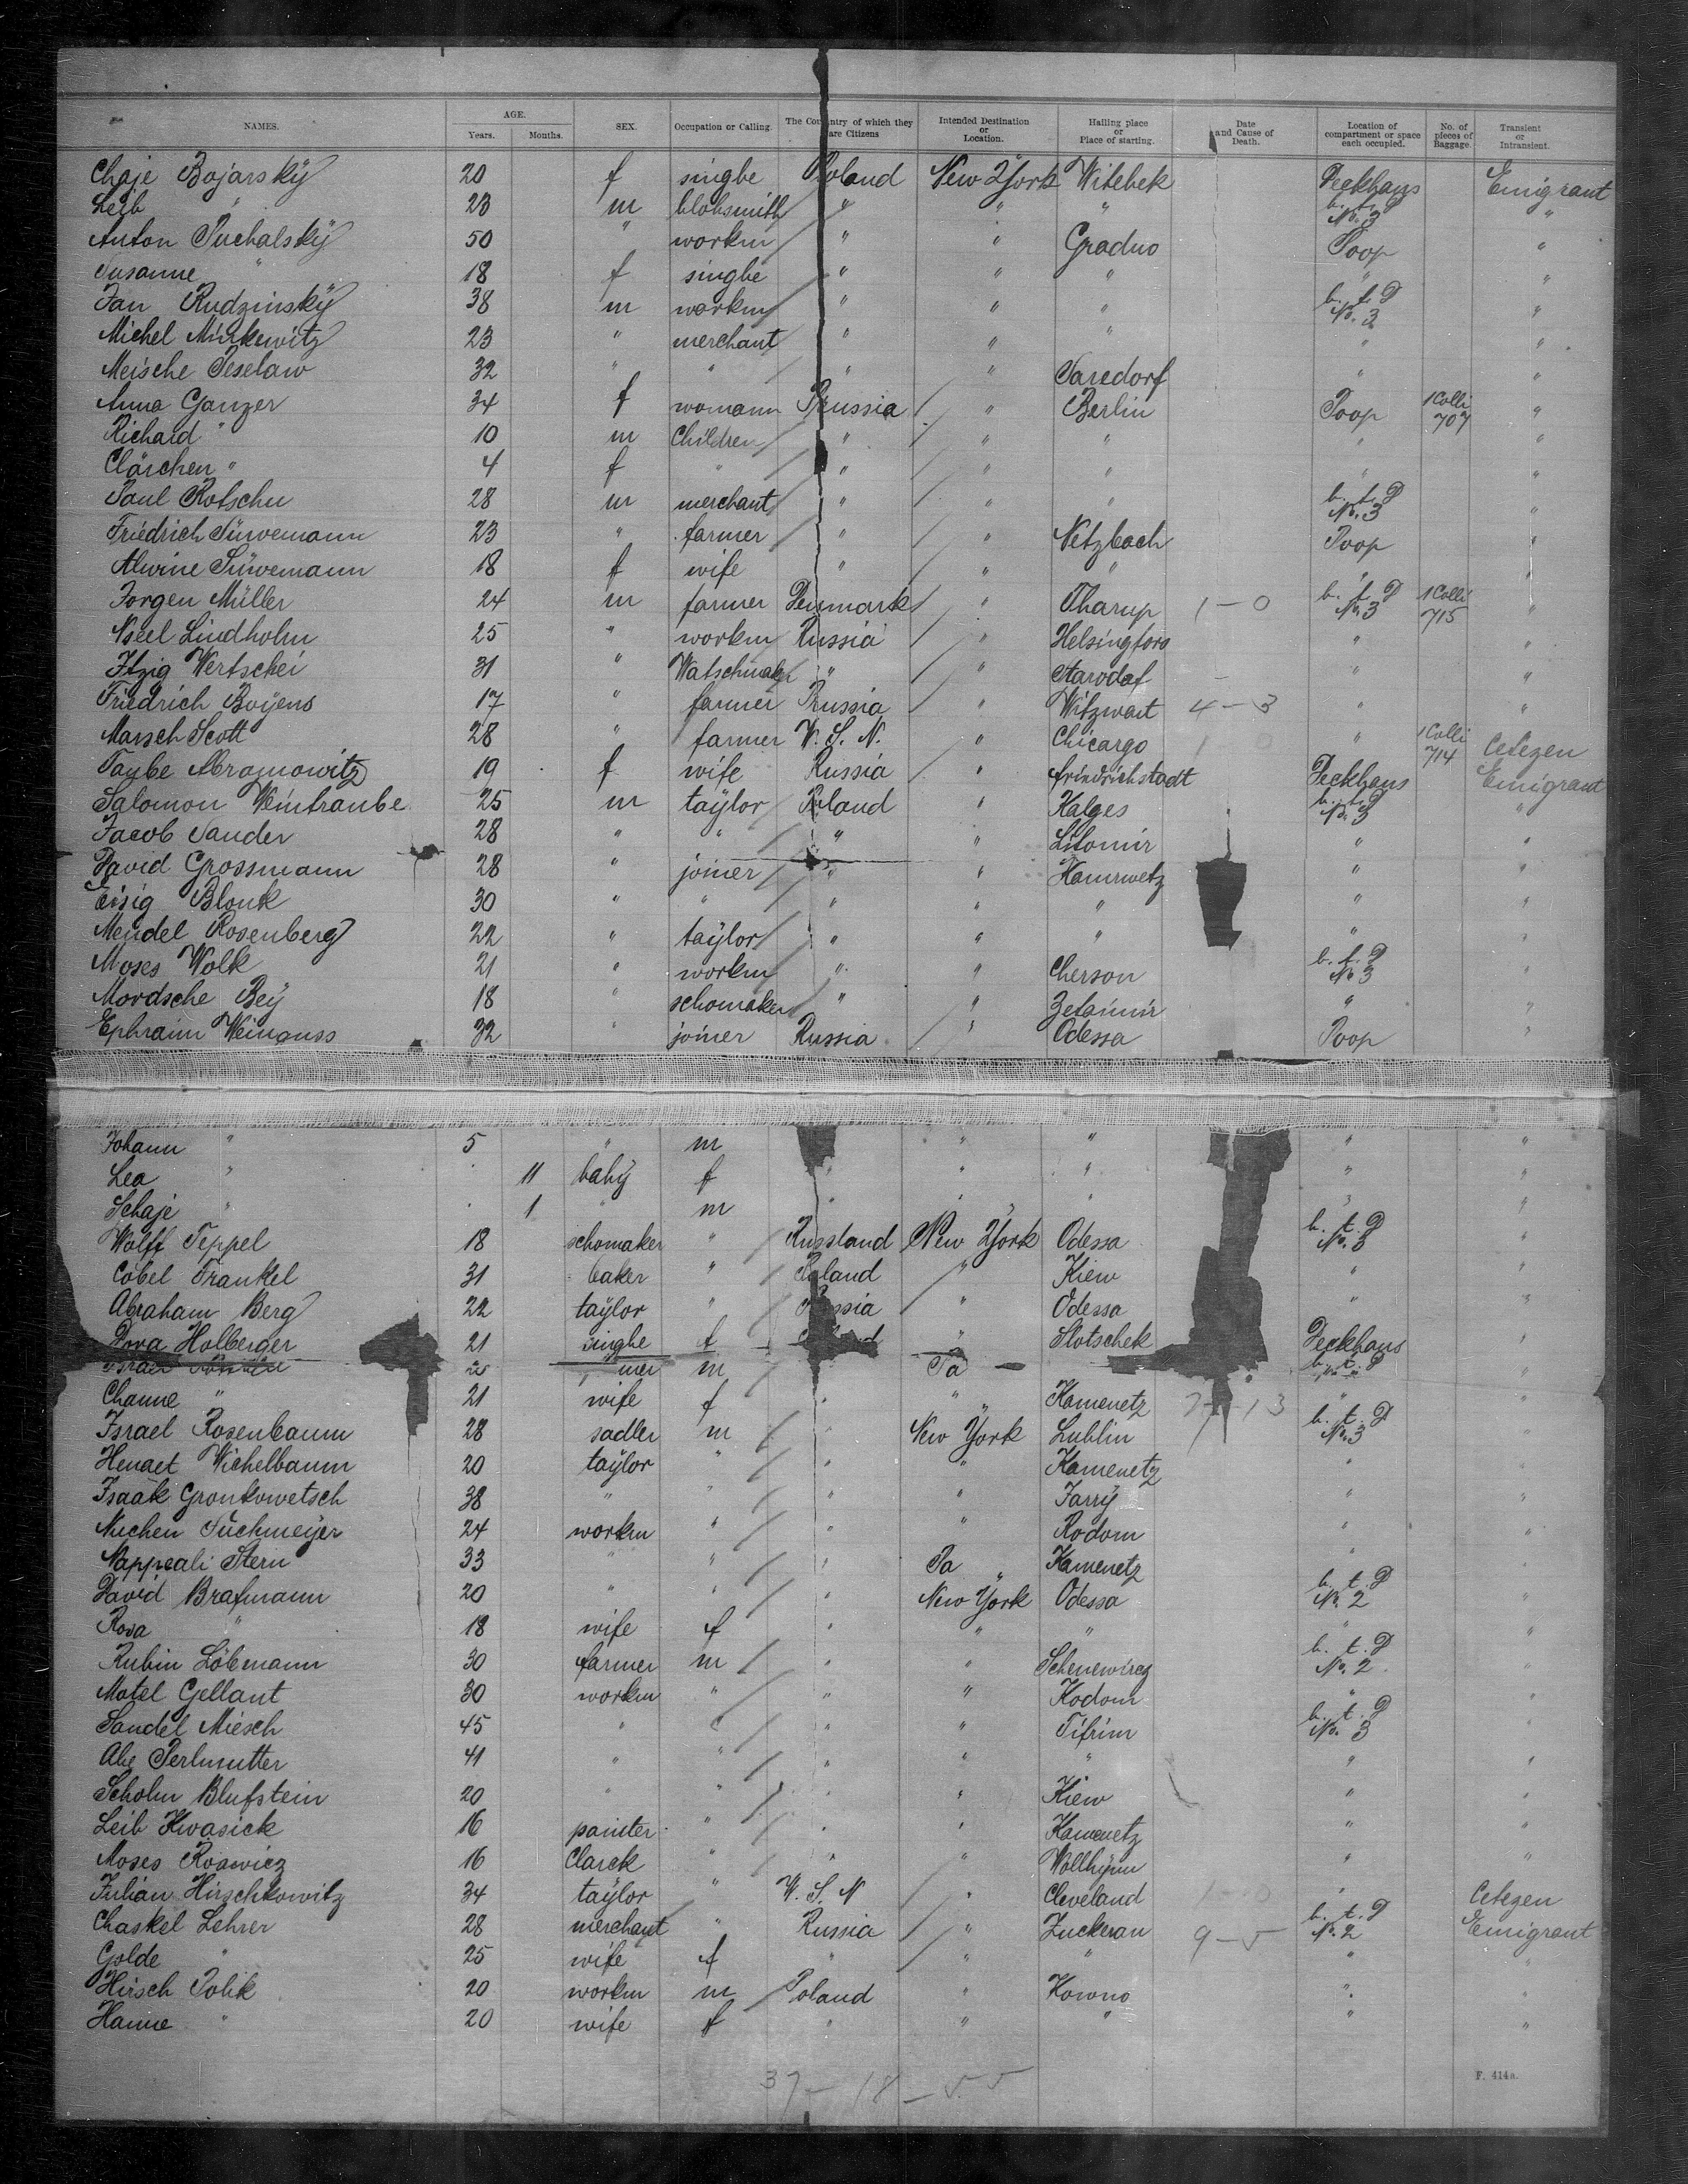 NAMES. AGE. Years. Months. SEX. Occupation or Calling. The Country of which they are Citizens Intended Destination or Location. Hailing place or Place of starting. Date and Cause of Death. Location of compartment or space each occupied. No. of pieces of Baggage. Transient or Intransient.
Chaje Bojarsky 20 f singbe Poland New York Witebek Deckhaus Emigrant
Leib " 23 m blobsmith " " " b. t. D No. 3 "
Anton Puchalsky 50 " workm " " Graduo Poop "
Susanne " 18 f singbe " " " " "
Jan Rudzinsky 38 m workm " " " b. t. D No. 3 "
Michel Mirkewitz 23 " merchant " " " " "
Meische Peselaw 32 " " " " Saredorf " "
Anna Ganzer 34 f womann Prussia " Berlin Poop 1 Colli 707 "
Richard " 10 m Children " " " " "
Clärchen " 4 f " " " " " "
Paul Rotschu 28 m merchant " " " b. t. D No. 3 "
Friedrich Süwemann 23 " farmer " " Netzbach Poop "
Alwine Süwemann 18 f wife " " " " "
Jorgen Müller 24 m farmer Denmark " Tharup 1 - 0 b. t. D No. 3 1 Colli 715 "
Lindholm 25 " workm Russia " Helsingfors " "
Itzig Wertschei 31 " Watschmaker " " Starodof " "
Friedrich Boyens 17 " farmer Prussia " Witzwart 4 - 3 " "
Marsch Scott 28 " farmer V. S. N. " Chicargo " 1 Colli 714 Cetezen
Taybe Abramowitz 19 f wife Russia " friedrichstadt Deckhaus Emigrant
Salomon Weintraube 25 m taylor Poland " Kalges b. t. D No. 3 "
Jacob Sander 28 " " " " Litomir " "
David Grossmann 28 " joiner " " Kamrwetz " "
Eisig Blonk 30 " " " " " " "
Mendel Rosenberg 22 " taylor " " " " "
Moses Wolk 21 " workm " " Cherson b. t. D No 3 "
Mordsche Bey 18 " schomaker " " Zetamir " "
Ephraim 32 " joiner Russia " Odessa Poop "
Johann " 5 " m " " " "
Lea " 11 baby f " " " " "
Schaje " 1 " m " " " " "
Wolff Teppel 18 schomaker " Russland New York Odessa b. t. D No. 3 "
Cobel Frankel 31 baker " Poland " Kiew " "
Abraham Berg 22 taylor " Russia " Odessa " "
Dora Holberger 21 singbe f " Slotschek Deckhaus "
Israel m Pa b. t. D "
Channe " 21 wife f " " Kamenetz 7 - 13 " "
Israel Rosenbaum 28 sadler m " New York Lublin b. t. D No. 3 "
Wichelbaum 20 taylor " " " Kamenetz " "
Isaak Gronkowetsch 38 " " " " Jarry " "
Nuchen Tuchmeyer 24 workm " " " Rodom " "
Nappeali Stern 33 " " " Pa Kamenetz " "
David Brafmann 20 " " " New York Odessa b. t. D No. 2 "
Rosa " 18 wife f " " " " "
Rubin Löbemann 30 farmer m " " Schenewirez b. t. D No. 2 "
Motel Gellant 30 workm " " " Kodom " "
Sandel Miesch 45 " " " " Tifrim b. t. D No. 3 "
Abe Perlmutter 41 " " " " " " "
Scholm Blufstein 20 " " " " Kiew " "
Leib Kwasick 16 painter " " " Kamenetz " "
Moses Roawicz 16 Clarck " " " Wollhynn " "
Julian Hirschkowitz 34 taylor " V. S. N " Cleveland 1 - 0 " Cetezen
Chaskel Lehrer 28 merchant " Russia " Zuckerau 9 - 5 b. t. D No. 2 Emigrant
Golde " 25 wife f " " " " "
Hirsch Polik 20 workm m Poland " Kowno " "
Hanne " 20 wife f " " " " "
37 - 18 - 55
F. 414a.